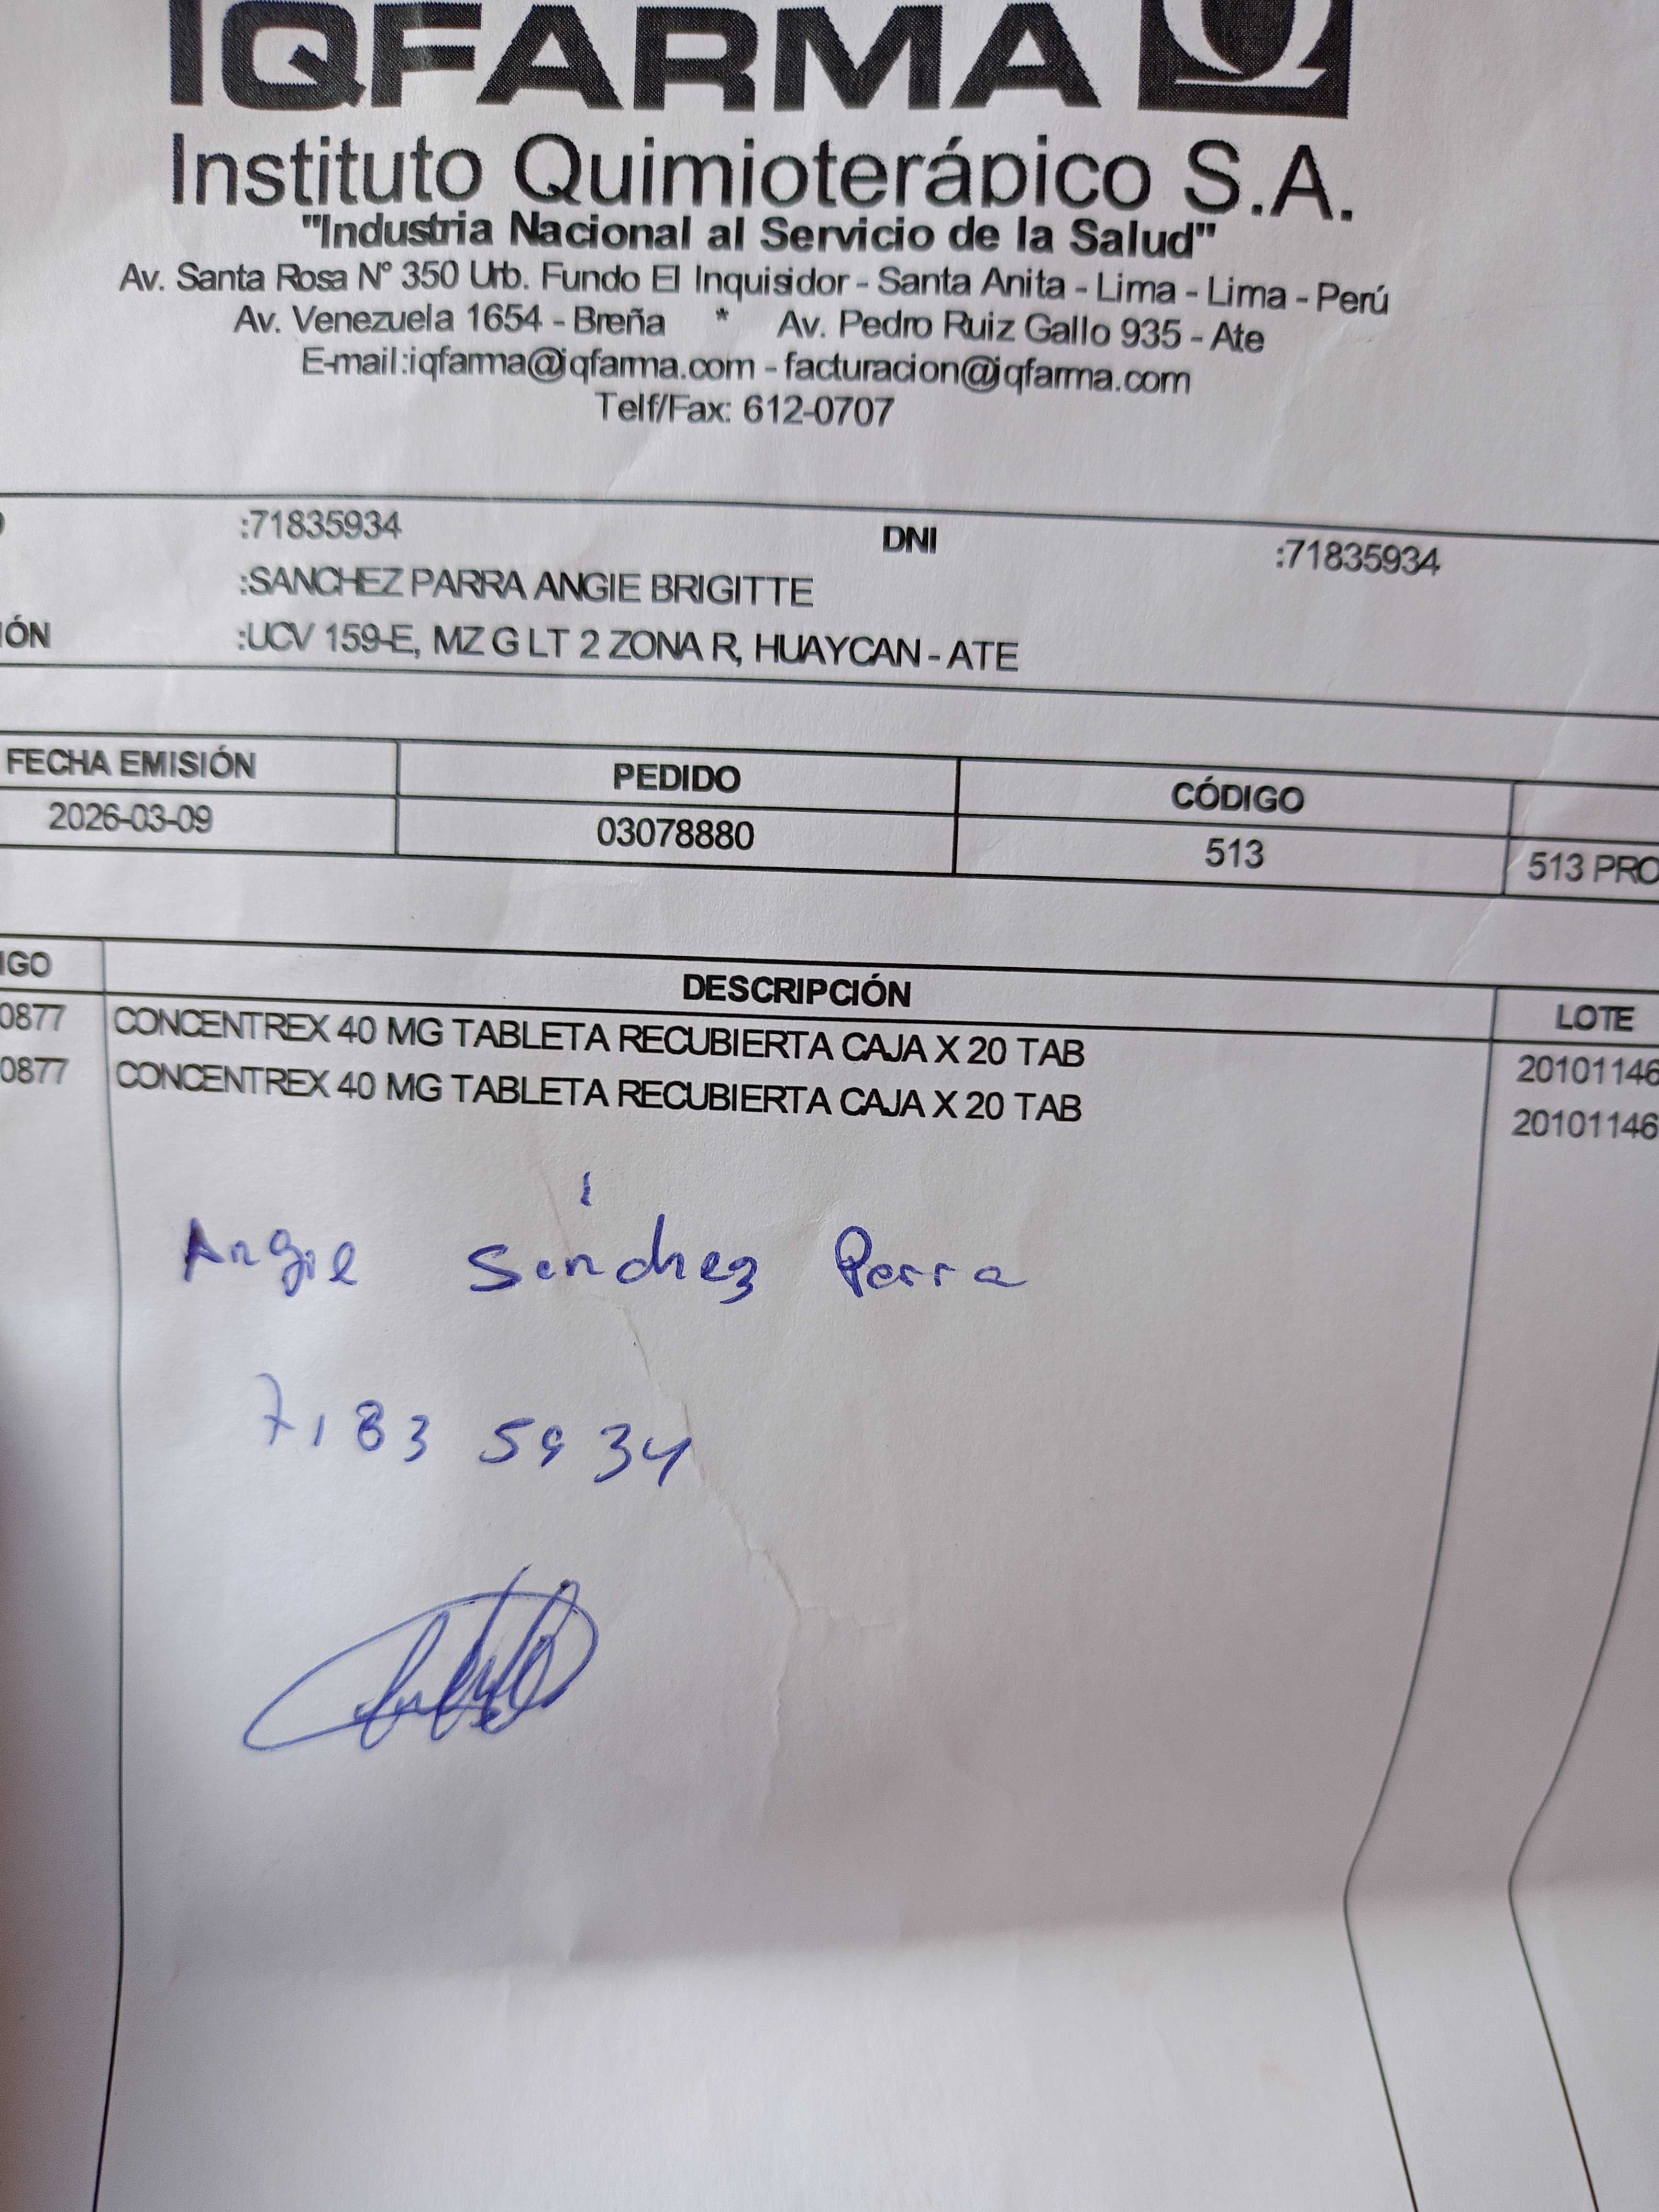 IQFARMA
Instituto Quimioterápico S.A.
"Industria Nacional al Servicio de la Salud"
Av. Santa Rosa N° 350 Urb. Fundo El Inquisidor - Santa Anita - Lima - Lima - Perú
Av. Venezuela 1654 - Breña * Av. Pedro Ruiz Gallo 935 - Ate
E-mail:iqfarma@iqfarma.com - facturacion@iqfarma.com
Telf/Fax: 612-0707
:71835934 DNI :71835934
:SANCHEZ PARRA ANGIE BRIGITTE
IÓN :UCV 159-E, MZ G LT 2 ZONA R, HUAYCAN - ATE
FECHA EMISIÓN PEDIDO CÓDIGO
2026-03-09 03078880 513 513 PRO
IGO DESCRIPCIÓN LOTE
0877 CONCENTREX 40 MG TABLETA RECUBIERTA CAJA X 20 TAB 20101146
0877 CONCENTREX 40 MG TABLETA RECUBIERTA CAJA X 20 TAB 20101146
Angie Sánchez Parra
71835934